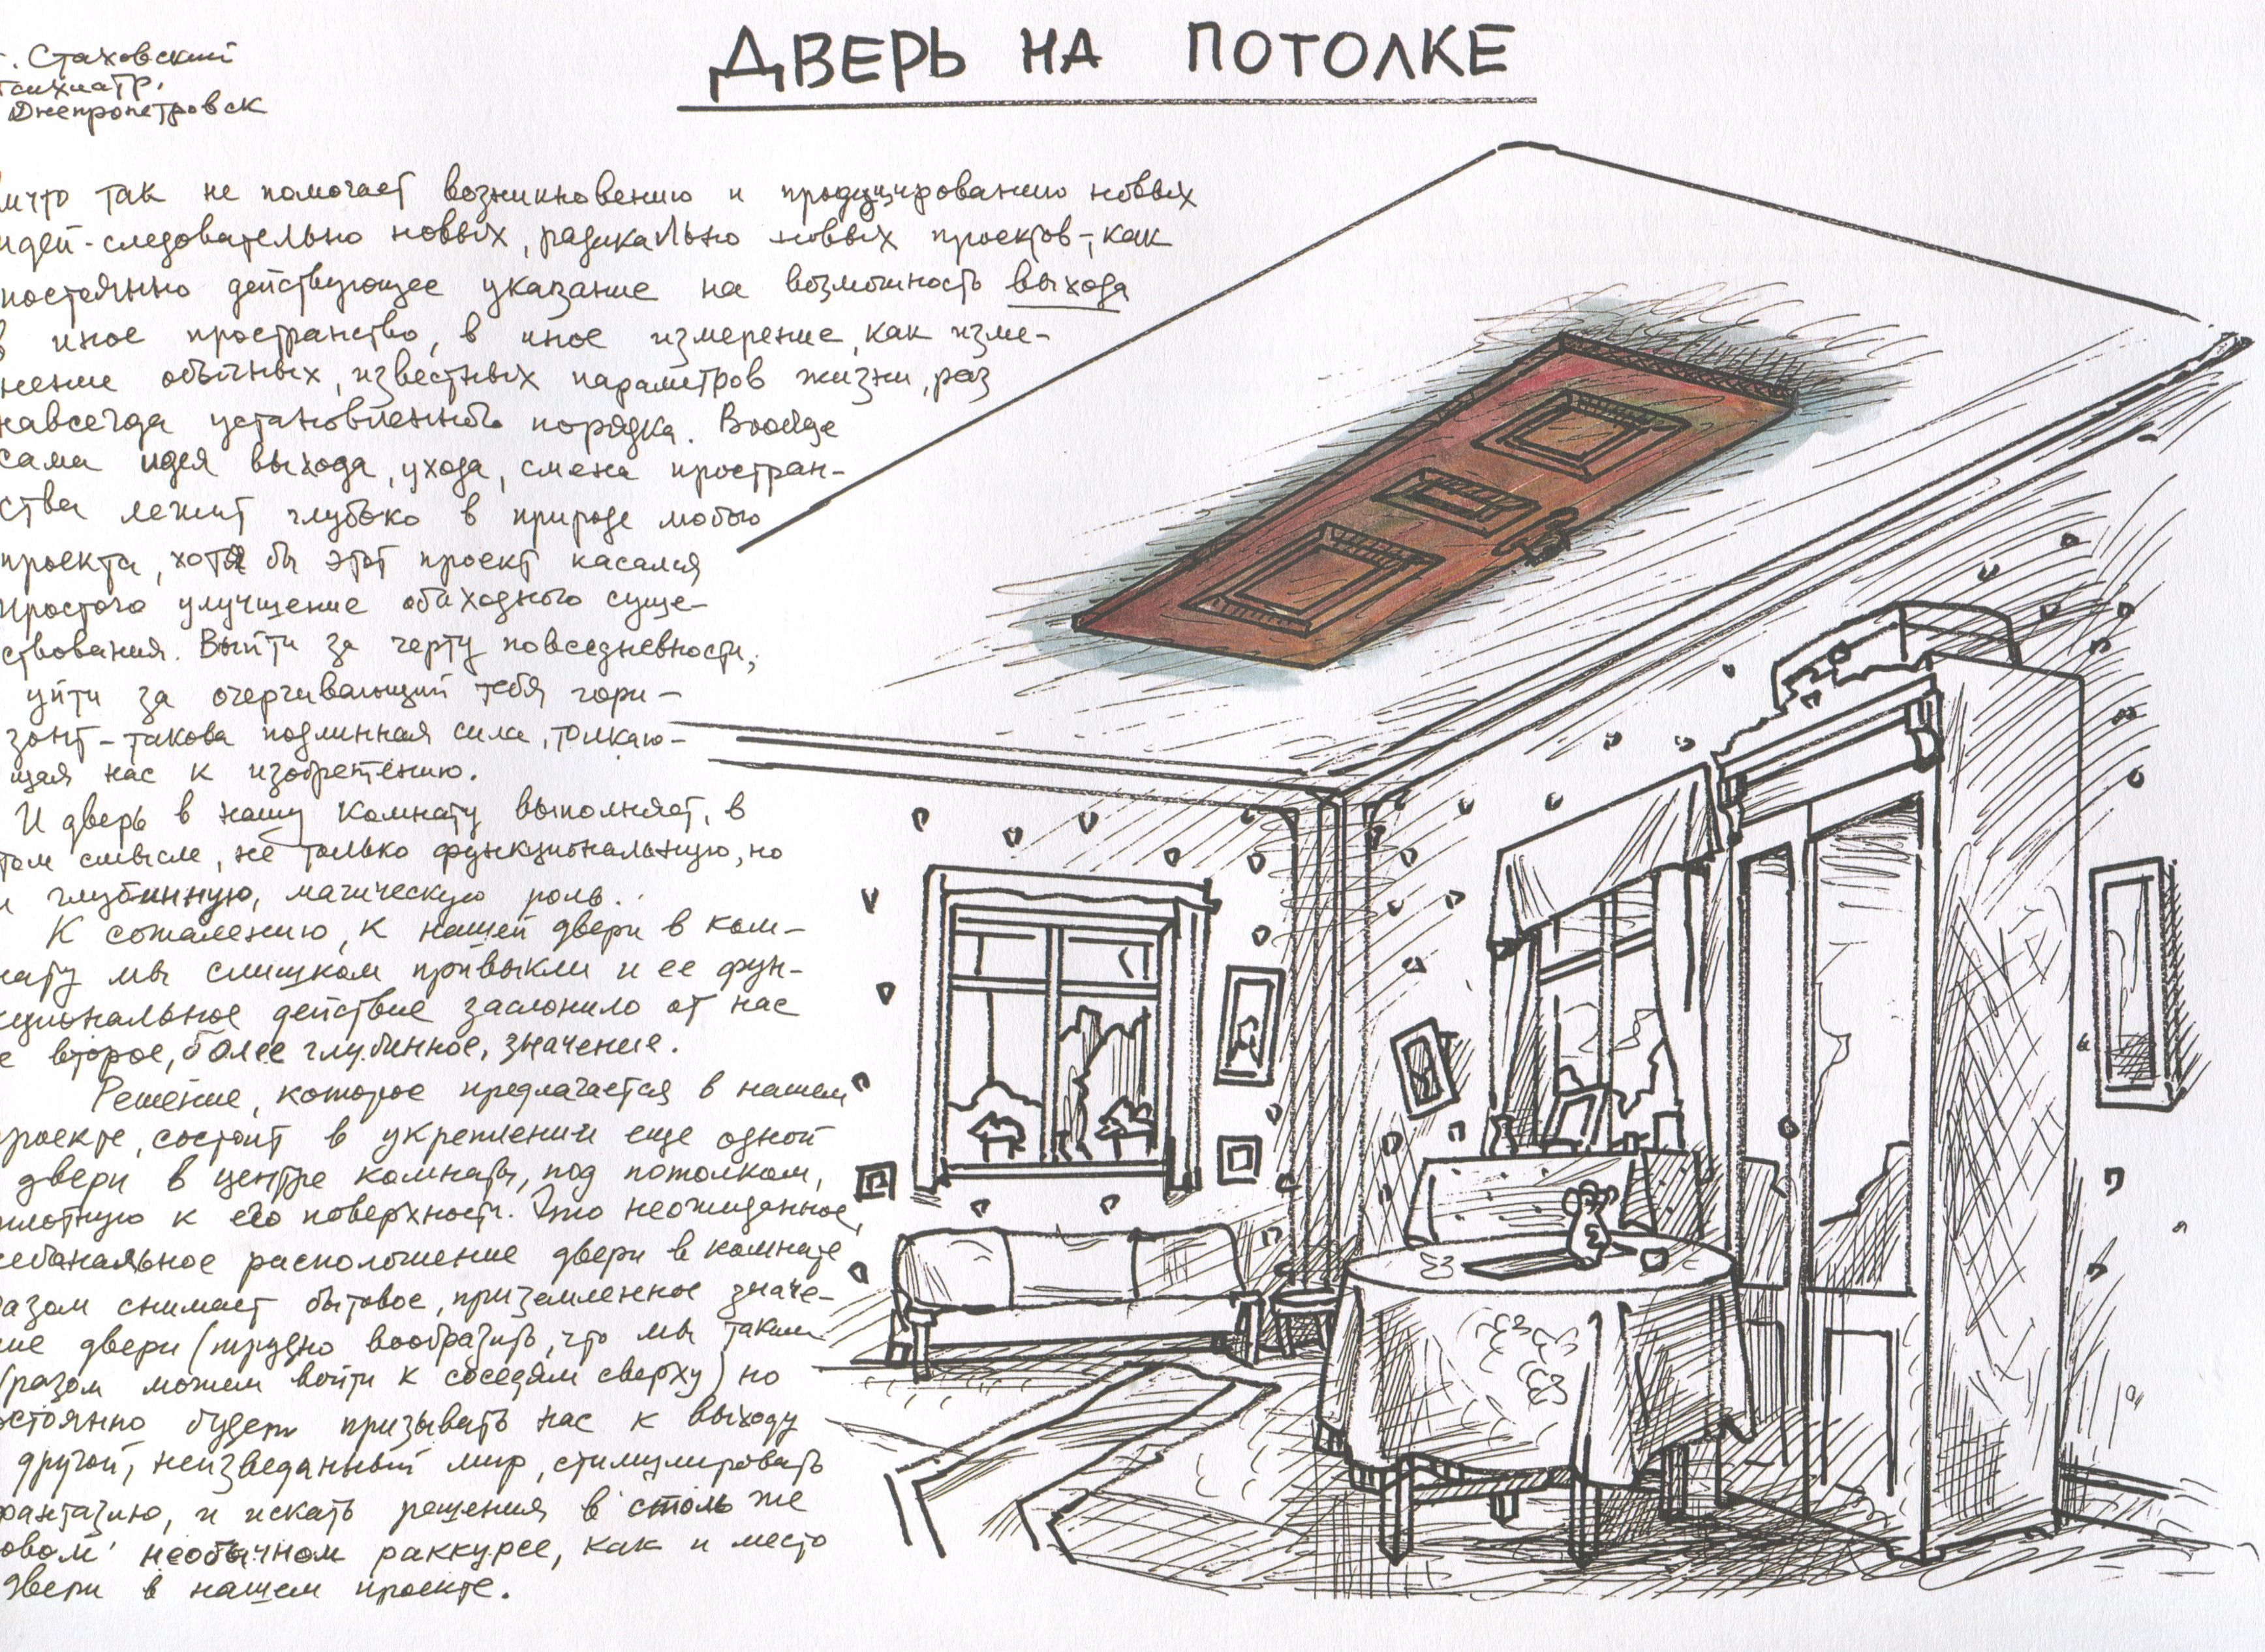 ДВЕРЬ НА ПОТОЛКЕ
г. Стаховский
психиатр,
Днепропетровск
ничто так не помогает возникновению и продуцированию новых
идей - следовательно новых, радикально новых проектов -, как
постоянно действующее указание на возможность выхода
в иное пространство, в иное измерение, как изме-
нение обычных, известных параметров жизни, раз
навсегда установленного порядка. Вообще
сама идея выхода, ухода, смена простран-
ства лежит глубоко в природе любого
проекта, хотя бы этот проект касался
простого улучшение обиходного суще-
ствования. Выйти за черту повседневности,
уйти за очерчивающий тебя гори-
зонт - такова подлинная сила, толкаю-
щая нас к изобретению.
И дверь в нашу комнату выполняет, в
том смысле, не только функциональную, но
и глубинную, магическую роль.
К сожалению, к нашей двери в ком-
нату мы слишком привыкли и ее фун-
кциональное действие заслонило от нас
е второе, более глубинное, значение.
Решение, которое предлагается в нашем
проекте, состоит в укреплении еще одной
двери в центре комнаты, под потолком,
плотную к его поверхности. Это неожиданное,
небанальное расположение двери в комнате
разом снимает бытовое, приземленное значе-
ние двери (трудно вообразить, что мы таким
образом можем войти к соседям сверху) но
постоянно будет призывать нас к выходу
другой, неизведанный мир, стимулировать
фантазию, и искать решения в столь же
новом необычном раккурсе, как и место
двери в нашем проекте.